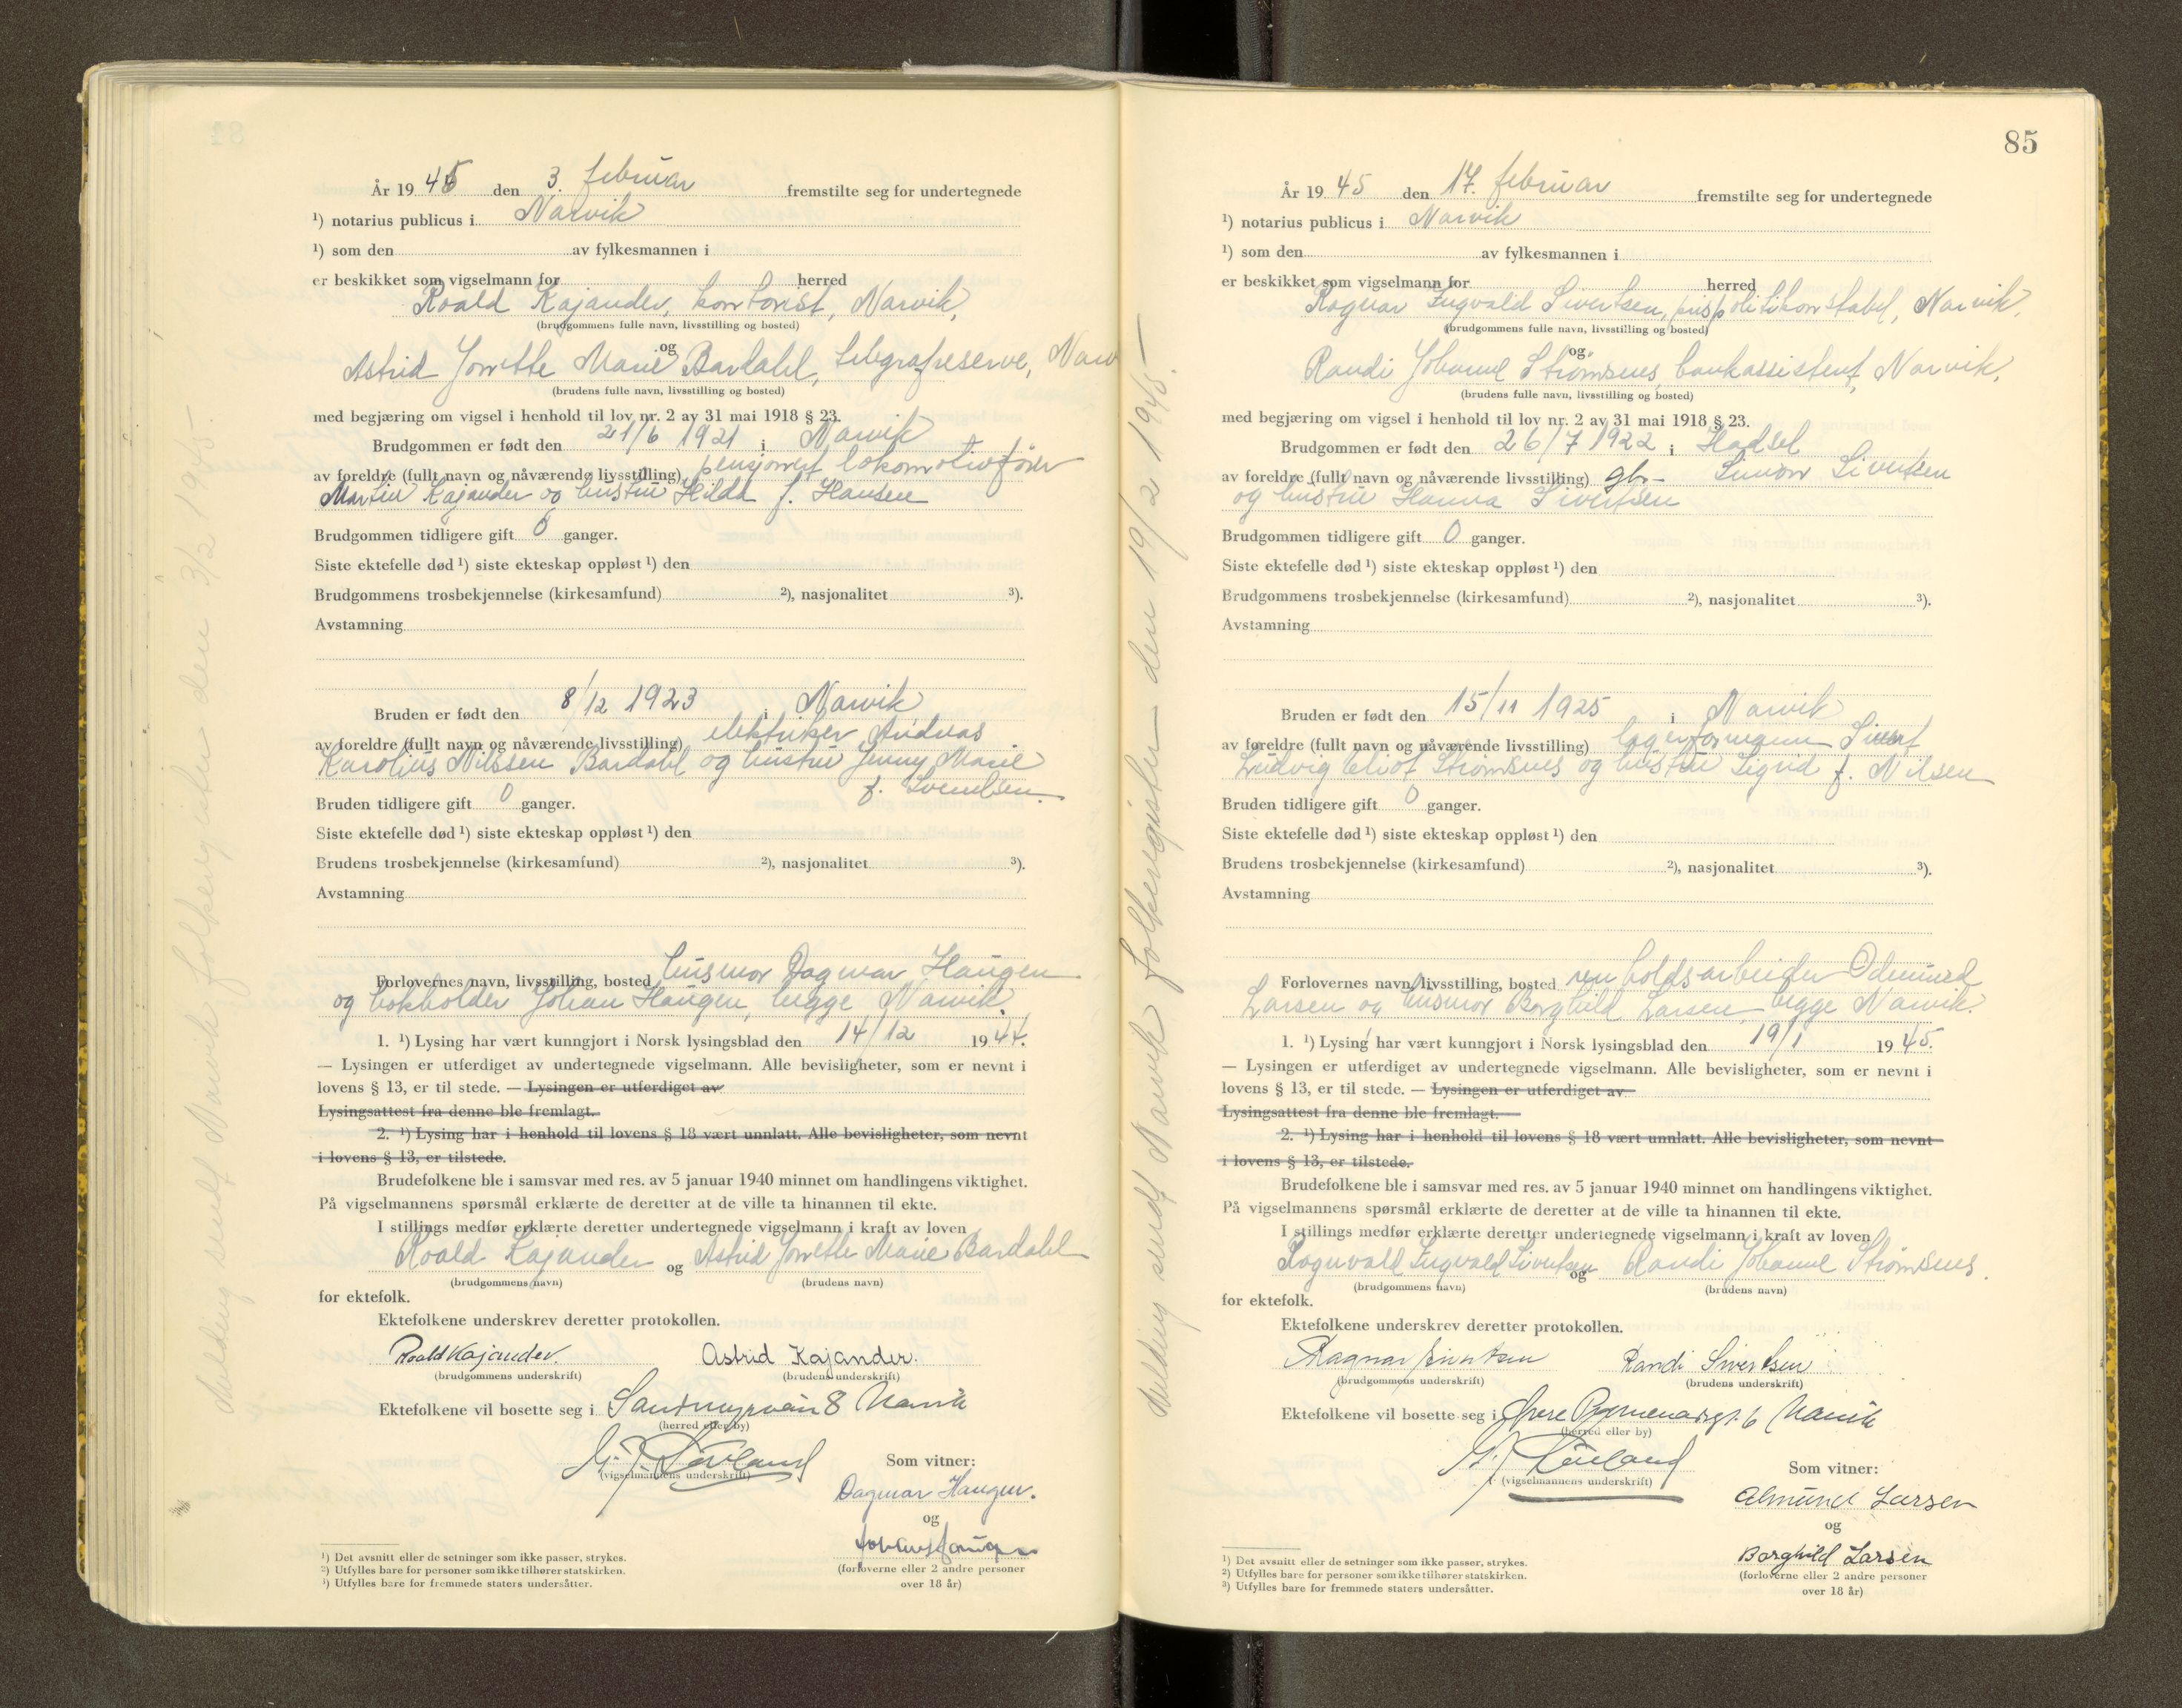 År 1945 den 3. februar fremstilte seg for undertegnede
¹) notarius publicus i Narvik
¹) som den av fylkesmannen i
er beskikket som vigselmann for herred
Roald Kajander, kontorist, Narvik,
(brudgommens fulle navn, livsstilling og bosted)
og
Astrid Jorette Marie Bardahl, telegrafreserve, Narv
(brudens fulle navn, livsstilling og bosted)
med begjæring om vigsel i henhold til lov nr. 2 av 31 mai 1918 § 23.
Brudgommen er født den 21/6 1921 i Narvik
av foreldre (fullt navn og nåværende livsstilling) pensjonert lokomotivfører
Martin Kajander og hustru Hilda f. Hansen
Brudgommen tidligere gift 0 ganger.
Siste ektefelle død ¹) siste ekteskap oppløst ¹) den
Brudgommens trosbekjennelse (kirkesamfund) ²), nasjonalitet ³).
Avstamning
Bruden er født den 8/12 1923 i Narvik
av foreldre (fullt navn og nåværende livsstilling) elektriker Andreas
Karolius Nilssen Bardahl og hustru Jenny Marie
f. Svendsen.
Bruden tidligere gift 0 ganger.
Siste ektefelle død ¹) siste ekteskap oppløst ¹) den
Brudens trosbekjennelse (kirkesamfund) ²), nasjonalitet ³).
Avstamning
Forlovernes navn, livsstilling, bosted husmor Dagmar Haugen
og bokholder Johan Haugen, begge Narvik.
1. ¹) Lysing har vært kunngjort i Norsk lysingsblad den 14/12 1944.
— Lysingen er utferdiget av undertegnede vigselmann. Alle bevisligheter, som er nevnt i
lovens § 13, er til stede. — Lysingen er utferdiget av
Lysingsattest fra denne ble fremlagt.
2. ¹) Lysing har i henhold til lovens § 18 vært unnlatt. Alle bevisligheter, som nevnt
i lovens § 13, er tilstede.
Brudefolkene ble i samsvar med res. av 5 januar 1940 minnet om handlingens viktighet.
På vigselmannens spørsmål erklærte de deretter at de ville ta hinannen til ekte.
I stillings medfør erklærte deretter undertegnede vigselmann i kraft av loven
Roald Kajander og Astrid Jorette Marie Bardahl
(brudgommens navn) (brudens navn)
for ektefolk.
Ektefolkene underskrev deretter protokollen.
Roald Kajander. Astrid Kajander.
(brudgommens underskrift) (brudens underskrift)
Ektefolkene vil bosette seg i 8 Narvik
(herred eller by)
(vigselmannens underskrift)
Som vitner:
Dagmar Haugen.
og
Johan Haugen
(forloverne eller 2 andre personer
over 18 år)
¹) Det avsnitt eller de setninger som ikke passer, strykes.
²) Utfylles bare for personer som ikke tilhører statskirken.
³) Utfylles bare for fremmede staters undersåtter.
Melding sendt Narvik folkeregister den 3/2 1945 –
85
År 1945 den 17. februar fremstilte seg for undertegnede
¹) notarius publicus i Narvik
¹) som den av fylkesmannen i
er beskikket som vigselmann for herred
Ragnar Ingvald Sivertsen, prispolitikonstabel, Narvik,
(brudgommens fulle navn, livsstilling og bosted)
og
Randi Johanne Strømsnes, bankassistent, Narvik,
(brudens fulle navn, livsstilling og bosted)
med begjæring om vigsel i henhold til lov nr. 2 av 31 mai 1918 § 23.
Brudgommen er født den 26/7 1922 i Hadsel
av foreldre (fullt navn og nåværende livsstilling) gbr. Simon Sivertsen
og hustru Hanna Sivertsen
Brudgommen tidligere gift 0 ganger.
Siste ektefelle død ¹) siste ekteskap oppløst ¹) den
Brudgommens trosbekjennelse (kirkesamfund) ²), nasjonalitet ³).
Avstamning
Bruden er født den 15/11 1925 i Narvik
av foreldre (fullt navn og nåværende livsstilling) lagerformann Sivert
Ludvig Strømsnes og hustru Sigrid f. Nilsen
Bruden tidligere gift 0 ganger.
Siste ektefelle død ¹) siste ekteskap oppløst ¹) den
Brudens trosbekjennelse (kirkesamfund) ²), nasjonalitet ³).
Avstamning
Forlovernes navn, livsstilling, bosted renholdsarbeider
Larsen og husmor Borghild Larsen, begge Narvik.
1. ¹) Lysing har vært kunngjort i Norsk lysingsblad den 19/1 1945.
— Lysingen er utferdiget av undertegnede vigselmann. Alle bevisligheter, som er nevnt i
lovens § 13, er til stede. — Lysingen er utferdiget av
Lysingsattest fra denne ble fremlagt.
2. ¹) Lysing har i henhold til lovens § 18 vært unnlatt. Alle bevisligheter, som nevnt
i lovens § 13, er tilstede.
Brudefolkene ble i samsvar med res. av 5 januar 1940 minnet om handlingens viktighet.
På vigselmannens spørsmål erklærte de deretter at de ville ta hinannen til ekte.
I stillings medfør erklærte deretter undertegnede vigselmann i kraft av loven
Ragnvald Ingvald Sivertsen og Randi Johanne Strømsnes.
(brudgommens navn) (brudens navn)
for ektefolk.
Ektefolkene underskrev deretter protokollen.
Ragnar Sivertsen Randi Sivertsen
(brudgommens underskrift) (brudens underskrift)
Ektefolkene vil bosette seg i Øvre 6 Narvik
(herred eller by)
(vigselmannens underskrift)
Som vitner:
Larsen
og
Borghild Larsen
(forloverne eller 2 andre personer
over 18 år)
¹) Det avsnitt eller de setninger som ikke passer, strykes.
²) Utfylles bare for personer som ikke tilhører statskirken.
³) Utfylles bare for fremmede staters undersåtter.
Melding sendt Narvik folkeregister den 19/2 1945 –